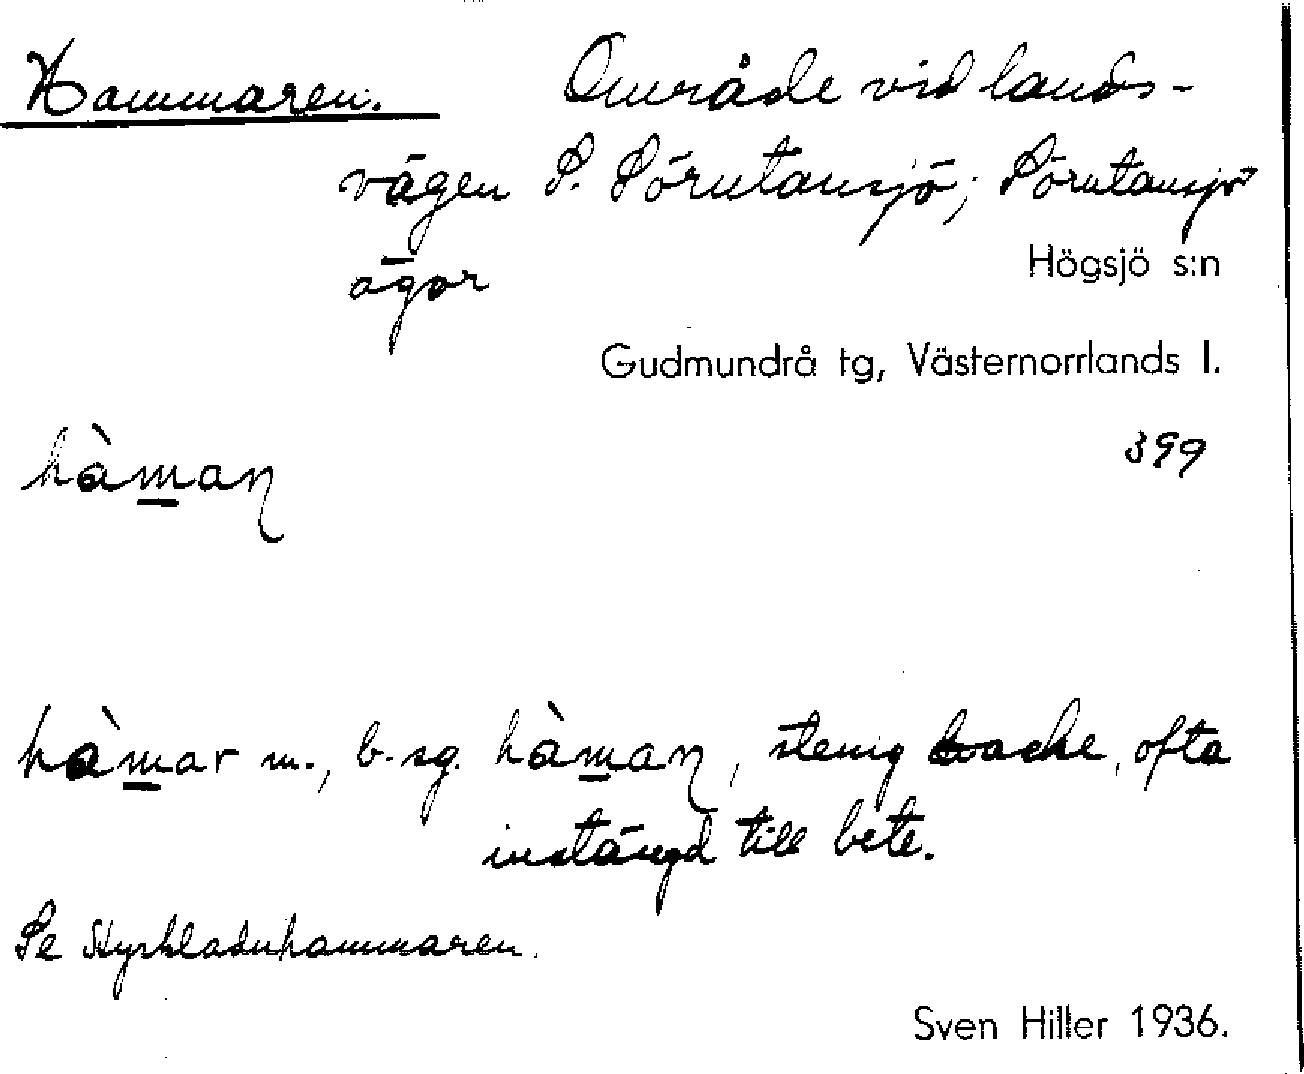 Hammaren. Område vid lands-
vägen S. Sörutansjö; Sörutansjö
ägor
Högsjö s:n
Gudmundrå tg, Västernorrlands l.
399
hàm̲aɳ
hàm̲ar m., b. sg. hàm̲aɳ, stenig backe, ofta
instängd till bete.
Se Styrkladuhammaren.
Sven Hiller 1936.